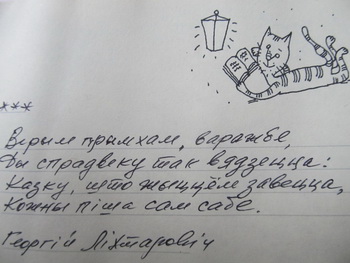 ***
Верым прымхам, варажбе,
Бы спрадвеку так вядзецца:
Казку, што жыццём завецца,
Кожны піша сам сабе.
Георгій Ліхтаровіч